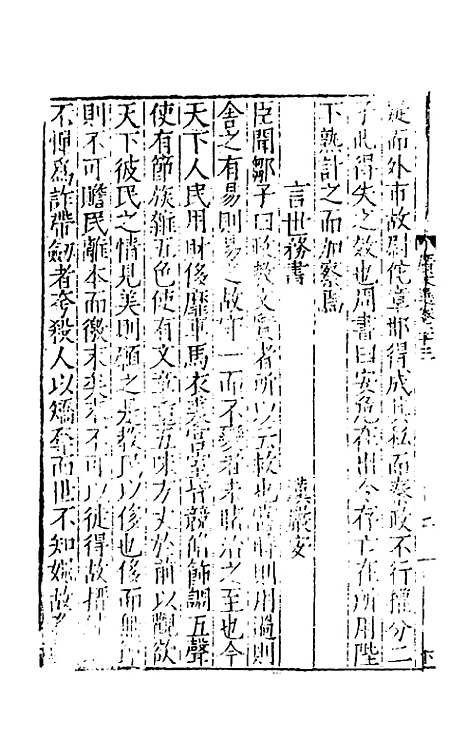 疑而外市故尉佗章邯得成其私而秦政不行權分二
子此得失之效也周書曰安危在出令存亡在所用陛
下熟計之而加察焉
言世務書 漢嚴安
臣聞鄒子曰政教文質者所以云救也當時則用過則
舍之有易則易之故守一而不變者未睹治之至也今
天下人民用財侈靡車馬衣裘宮室皆競飾飾調五聲
使有節族雜五色使有文章重五味方丈於前以觀欲
天下彼民之情見美則願之是教民以侈也侈而無
則不可贍民離本而徼末矣末不可以徒得故搢紳
不憚為詐帶劍者夸殺人以矯奪而世不知媿故